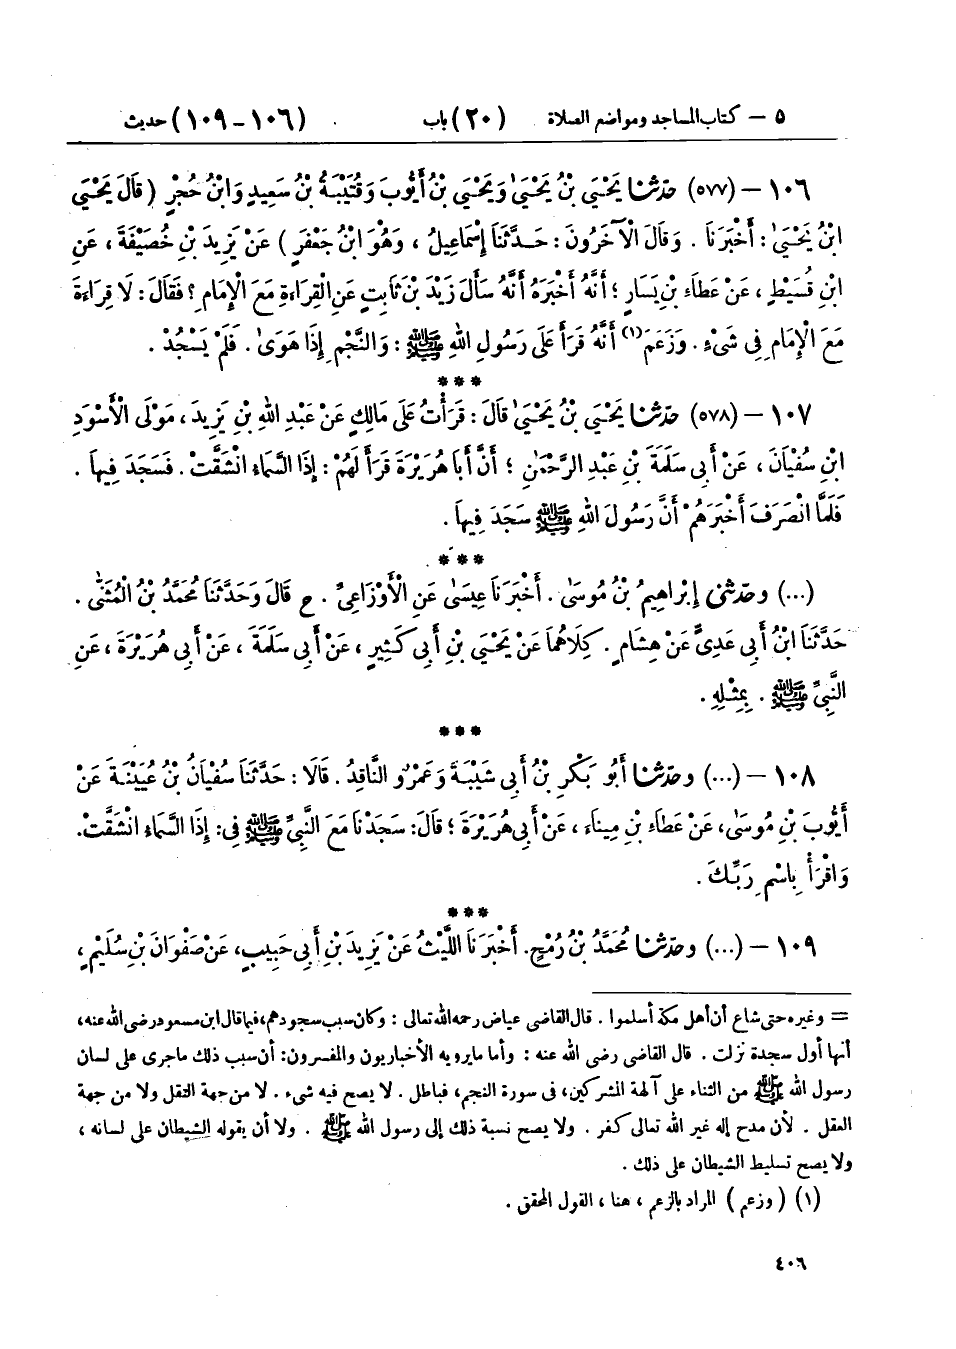 ٥ — كتاب المساجد ومواضع الصلاة (٢٠) باب (١٠٦-١٠٩) حديث
١٠٦ — (٥٧٧) حَدَّثَنَا يَحْيَىٰ بْنُ يَحْيَىٰ وَيَحْيَى بْنُ أَيُّوبَ وَقُتَيْبَةُ بْنُ سَعِيدٍ وَابْنُ حُجْرٍ (قَالَ يَحْيَى
ابْنُ يَحْيَىٰ: أَخْبَرَنَا . وَقَالَ الْآخَرُونَ: حَدَّثَنَا إِسْمَاعِيلُ ، وَهُوَ ابْنُ جَعْفَرٍ ) عَنْ يَزِيدَ بْنِ خُصَيْفَةَ ، عَنِ
ابْنِ قُسَيْطٍ ، عَنْ عَطَاءِ بْنِ يَسَارٍ ؛ أَنَّهُ أَخْبَرَهُ أَنَّهُ سَأَلَ زَيْدَ بْنَ ثَابِتٍ عَنِ الْقِرَاءَةِ مَعَ الْإِمَامِ ؟ فَقَالَ: لَا قِرَاءَةَ
مَعَ الْإِمَامِ فِي شَيْءٍ . وَزَعَمَ(١) أَنَّهُ قَرَأَ عَلَى رَسُولِ اللهِ ﷺ : وَالنَّجْمِ إِذَا هَوَىٰ . فَلَمْ يَسْجُدْ .
***
١٠٧ — (٥٧٨) حَدَّثَنَا يَحْيَىٰ بْنُ يَحْيَىٰ قَالَ : قَرَأْتُ عَلَى مَالِكٍ عَنْ عَبْدِ اللهِ بْنِ يَزِيدَ ، مَوْلَى الْأَسْوَدِ
ابْنِ سُفْيَانَ ، عَنْ أَبِي سَلَمَةَ بْنِ عَبْدِ الرَّحْمٰنِ ؛ أَنَّ أَبَا هُرَيْرَةَ قَرَأَ لَهُمْ : إِذَا السَّمَاءُ انْشَقَّتْ . فَسَجَدَ فِيهَا .
فَلَمَّا انْصَرَفَ أَخْبَرَهُمْ أَنَّ رَسُولَ اللهِ ﷺ سَجَدَ فِيهَا .
***
(...) وحَدَّثَنِي إِبْرَاهِيمُ بْنُ مُوسَىٰ . أَخْبَرَنَا عِيسَىٰ عَنِ الْأَوْزَاعِيِّ . ح قَالَ وَحَدَّثَنَا مُحَمَّدُ بْنُ الْمُثَنَّىٰ .
حَدَّثَنَا ابْنُ أَبِي عَدِيٍّ عَنْ هِشَامٍ . كِلَاهُمَا عَنْ يَحْيَى بْنِ أَبِي كَثِيرٍ ، عَنْ أَبِي سَلَمَةَ ، عَنْ أَبِي هُرَيْرَةَ ، عَنِ
النَّبِيِّ ﷺ . بِمِثْلِهِ .
***
١٠٨ — (...) وحَدَّثَنَا أَبُو بَكْرِ بْنُ أَبِي شَيْبَةَ وَعَمْرٌو النَّاقِدُ . قَالَا : حَدَّثَنَا سُفْيَانُ بْنُ عُيَيْنَةَ عَنْ
أَيُّوبَ بْنِ مُوسَىٰ، عَنْ عَطَاءِ بْنِ مِينَاءَ ، عَنْ أَبِي هُرَيْرَةَ ؛ قَالَ: سَجَدْنَا مَعَ النَّبِيِّ ﷺ فِي: إِذَا السَّمَاءُ انْشَقَّتْ.
وَاقْرَأْ بِاسْمِ رَبِّكَ .
***
١٠٩ — (...) وحَدَّثَنَا مُحَمَّدُ بْنُ رُمْحٍ. أَخْبَرَنَا اللَّيْثُ عَنْ يَزِيدَ بْنِ أَبِي حَبِيبٍ، عَنْ صَفْوَانَ بْنِ سُلَيْمٍ ،
= وغيره حتى شاع أن أهل مكة أسلموا . قال القاضى عياض رحمه الله تعالى : وكان سبب سجودهم، فيما قال ابن مسعود رضى الله عنه،
أنها أول سجدة نزلت . قال القاضى رضى الله عنه : وأما ما يرويه الأخباريون والمفسرون: أن سبب ذلك ما جرى على لسان
رسول الله ﷺ من الثناء على آلهة المشركين، فى سورة النجم، فباطل . لا يصح فيه شىء . لا من جهة النقل ولا من جهة
العقل . لأن مدح إله غير الله تعالى كفر . ولا يصح نسبة ذلك إلى رسول الله ﷺ . ولا أن يقوله الشيطان على لسانه ،
ولا يصح تسليط الشيطان على ذلك .
(١) (وزعم) المراد بالزعم ، هنا ، القول المحقق .
٤٠٦